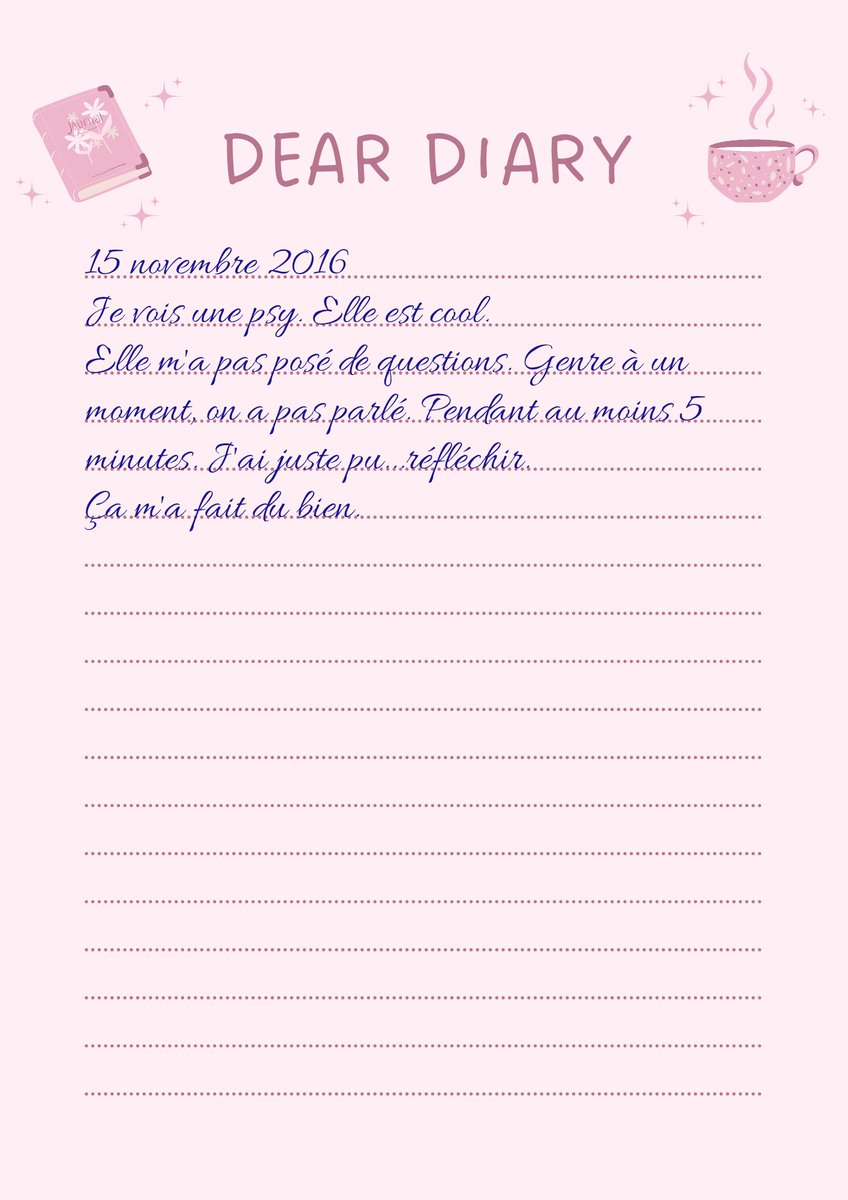 Journal
DEAR DIARY
15 novembre 2016
Je vois une psy. Elle est cool.
Elle m'a pas posé de questions. Genre à un
moment, on a pas parlé. Pendant au moins 5
minutes. J'ai juste pu...réfléchir.
Ça m'a fait du bien.